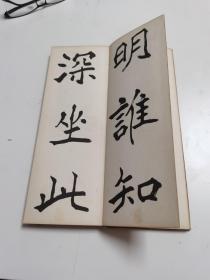 明誰知
深坐此